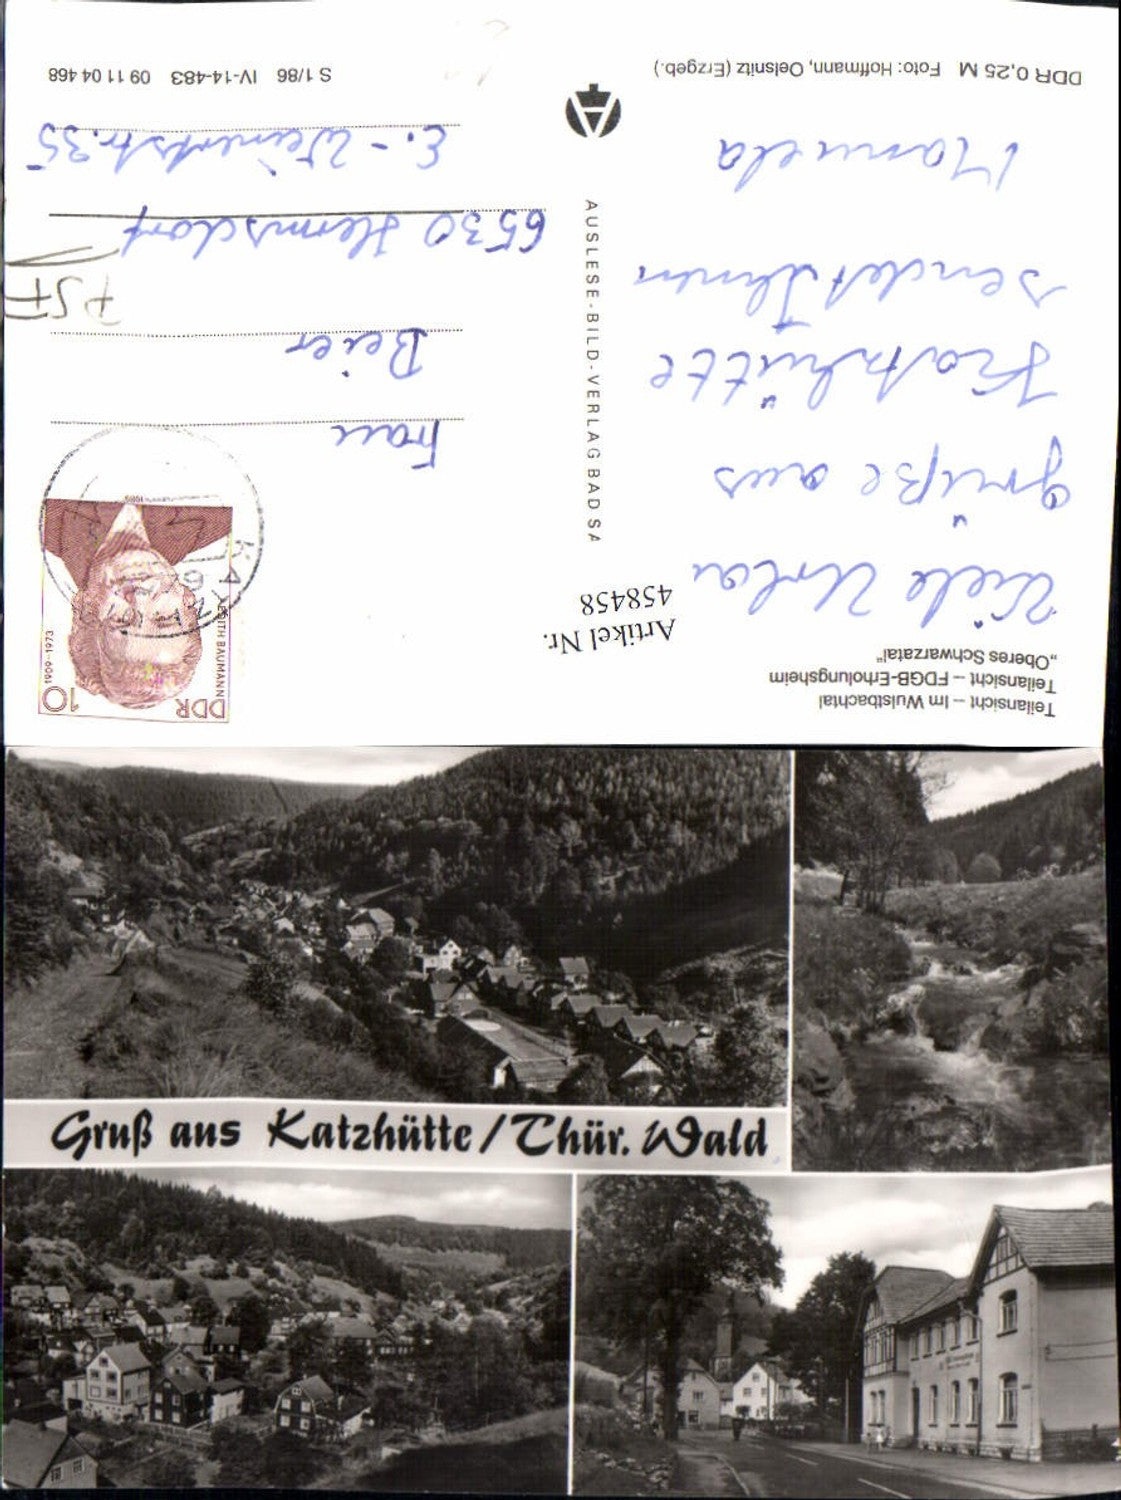 Teilansicht – Im Wulstbachtal
Teilansicht – FDGB-Erholungsheim
„Oberes Schwarzatal“
Artikel Nr.
458458
Viele Urlau
grüße aus
Katzhütte
sendet Ihnen
Manuela
DDR 0,25 M Foto: Hoffmann, Oelsnitz (Erzgeb.)
AUSLESE-BILD-VERLAG BAD SA
DDR 10
EDITH BAUMANN
1909–1973
Frau
Beier
PSF
6530 Hermsdorf
E.-Weinertstr. 35
S 1/86 IV-14-483 09 11 04 468
Gruß aus Katzhütte/Thür. Wald